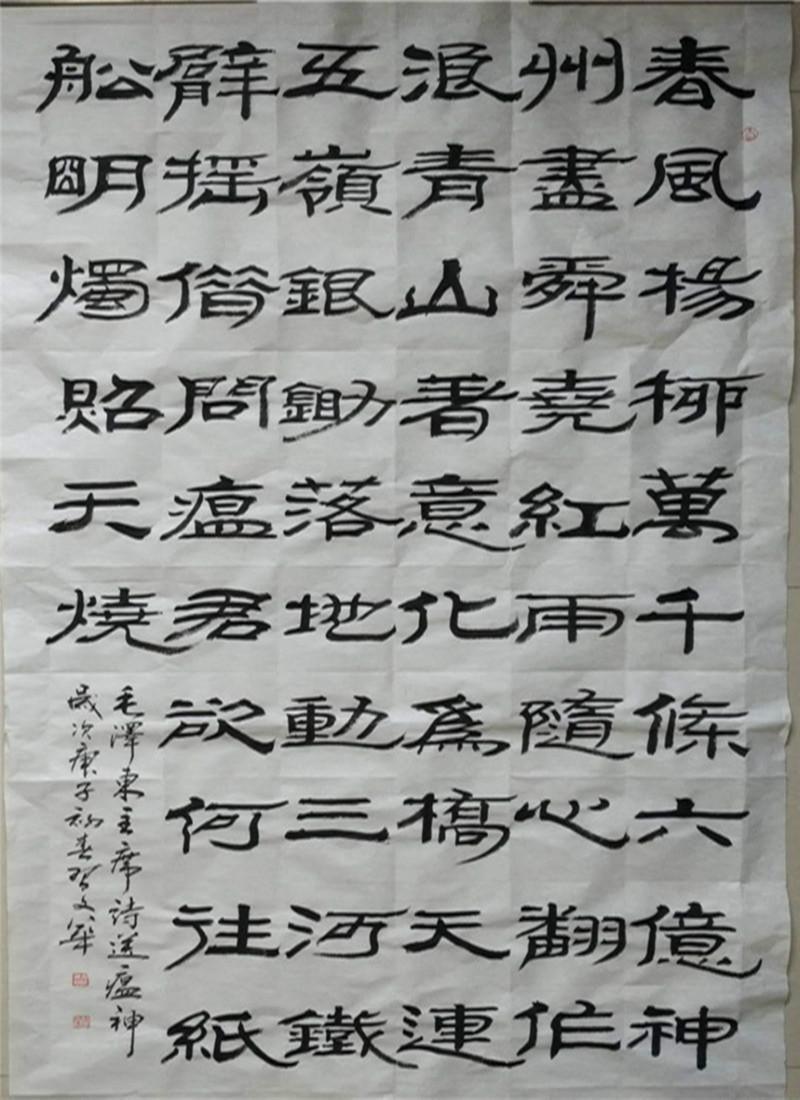 春風楊柳萬千條六億神
州盡舜堯紅雨隨心翻作
浪青山著意化為橋天連
五嶺銀鋤落地動三河鐵
臂搖借問瘟君欲何往紙
船明燭照天燒
毛澤東主席詩送瘟神
歲次庚子初春賀文華